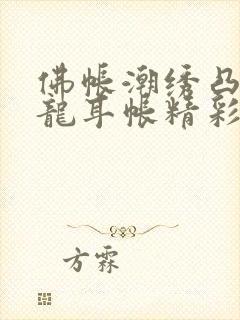 佛帳潮绣凸
龍耳帳精彩
方霖